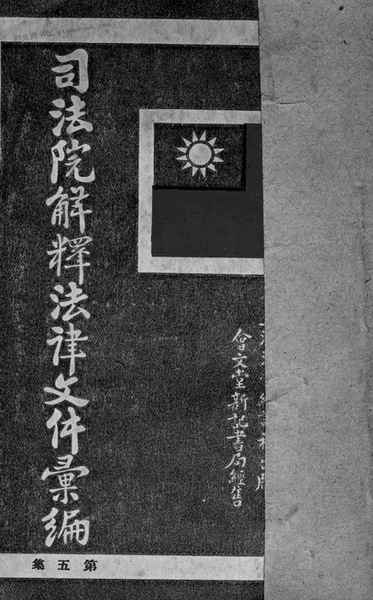 司法院解釋法律文件彙編
會文堂新記書局經售
第五集